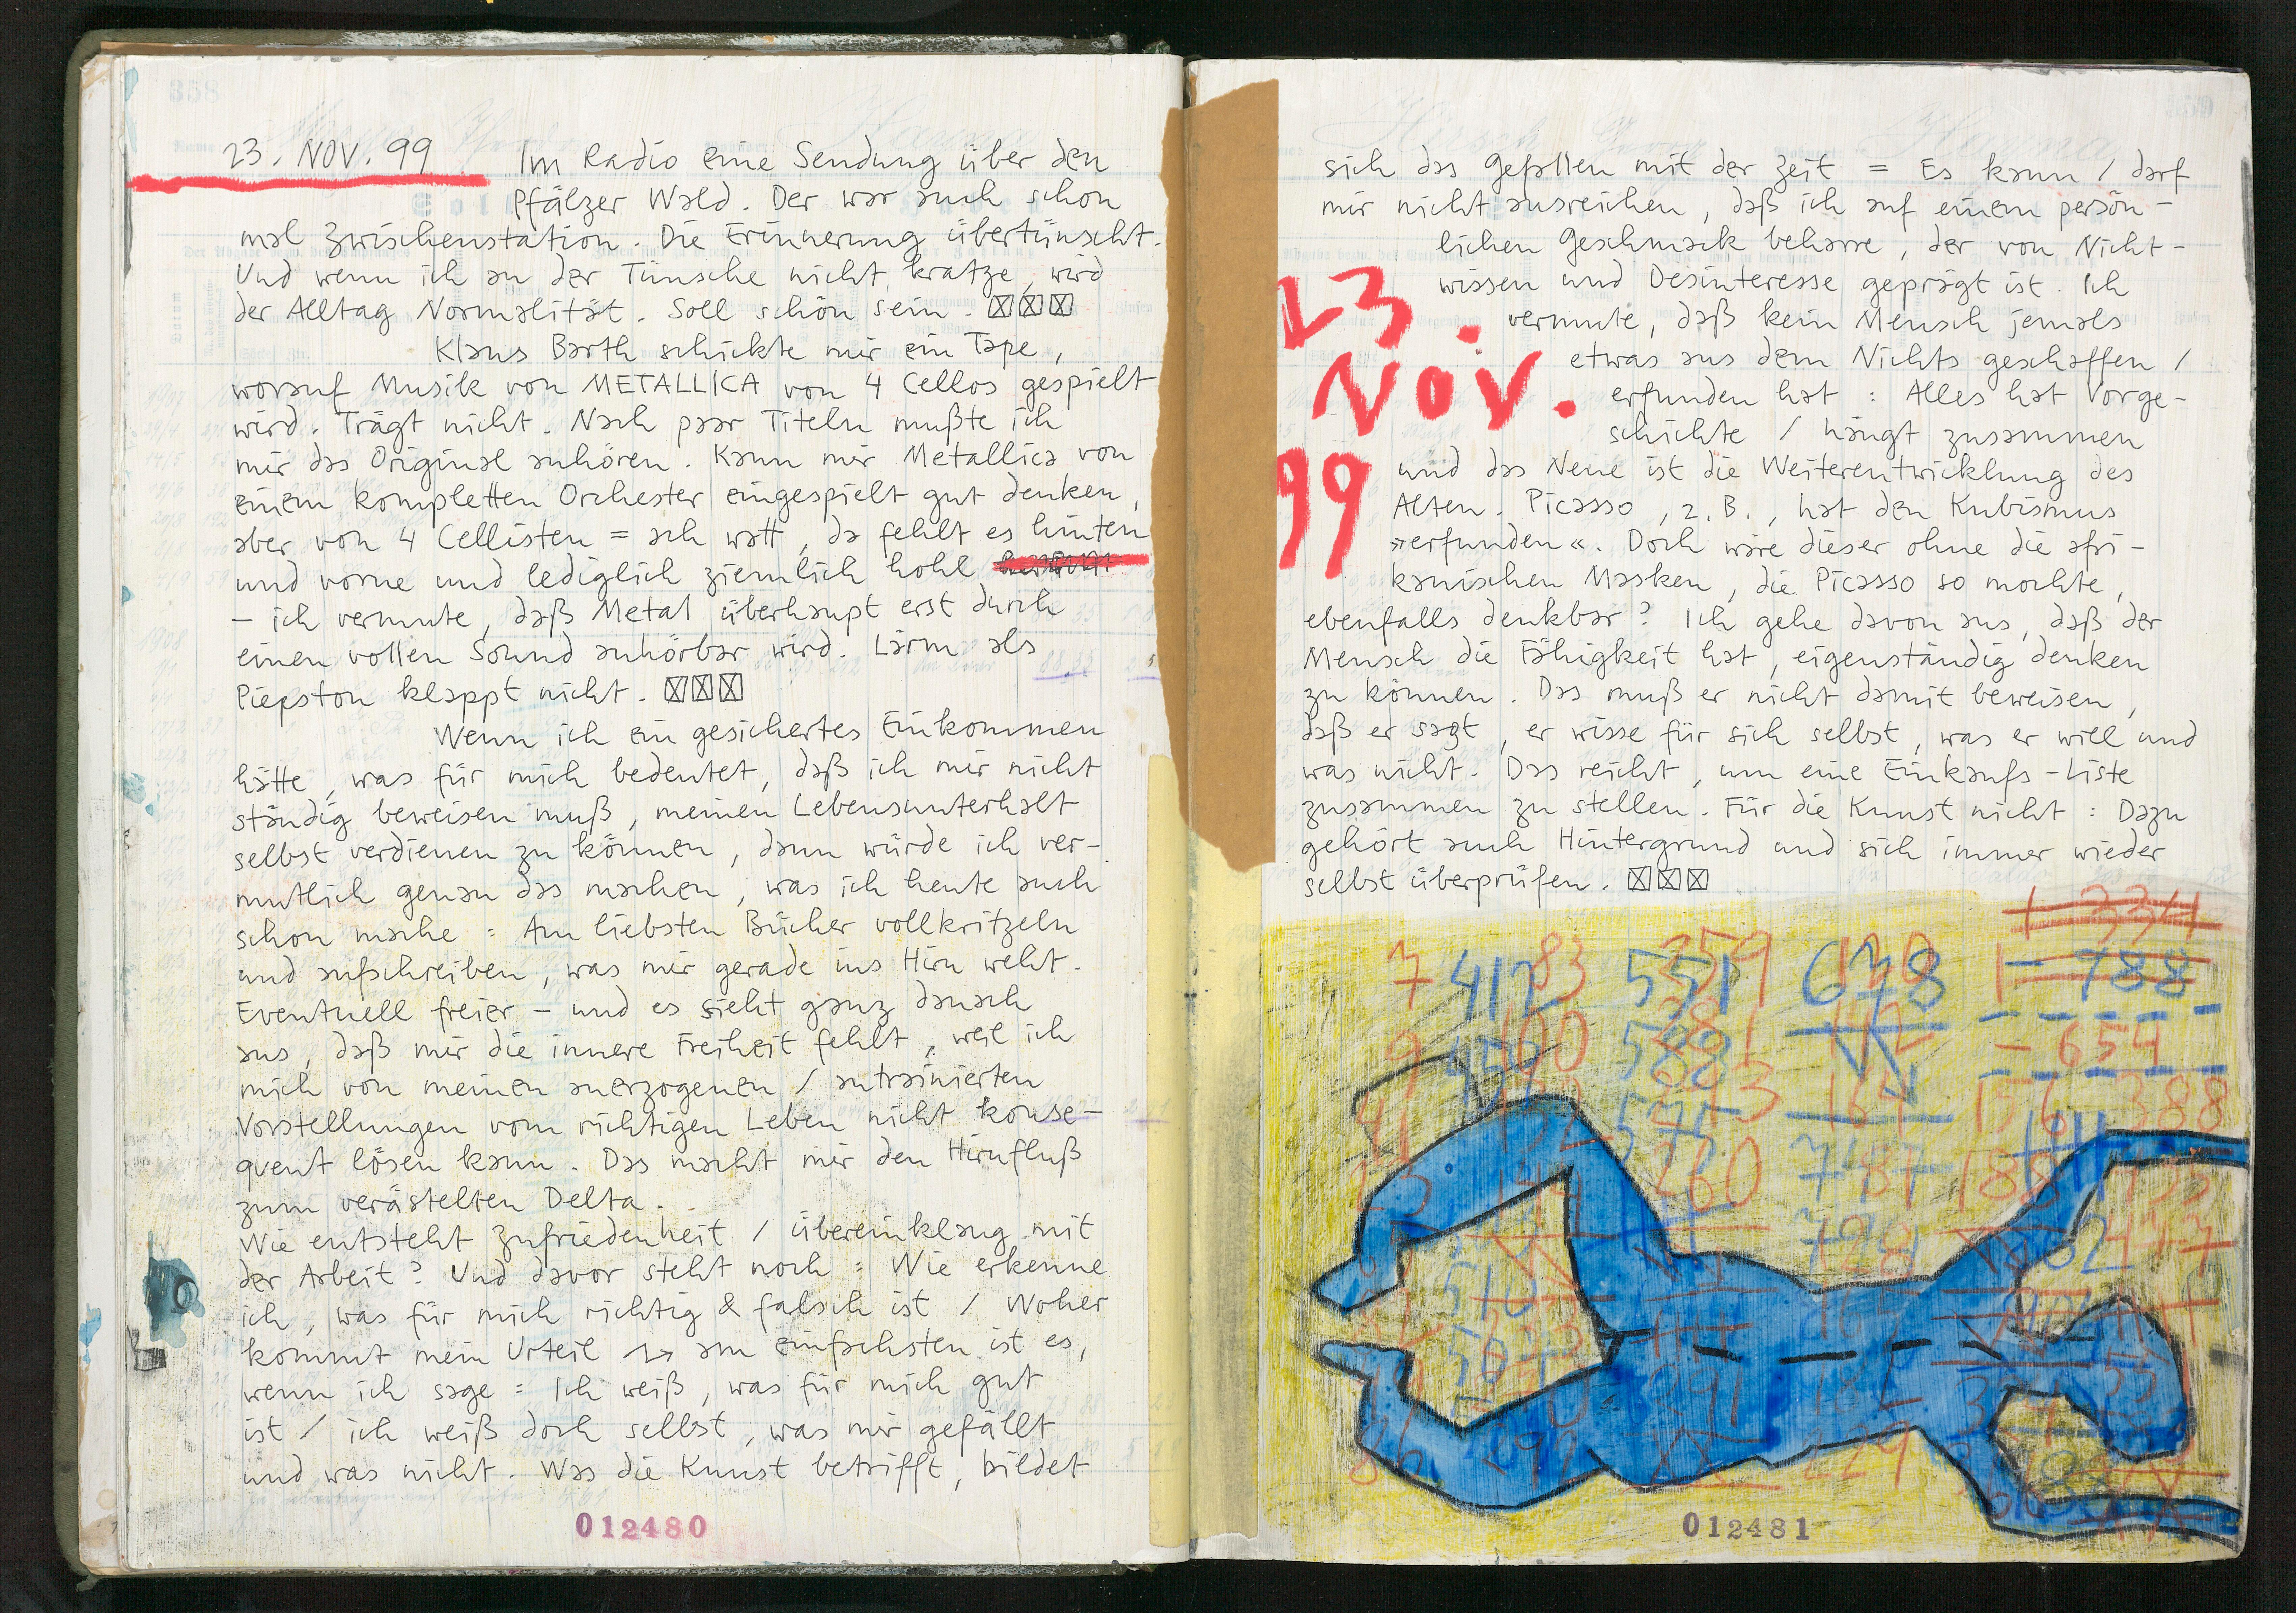 23. NOV. 99 Im Radio eine Sendung über den
Pfälzer Wald. Der war auch schon
mal Zwischenstation. Die Erinnerung übertüncht.
Und wenn ich an der Tünche nicht kratze, wird
der Alltag Normalität. Soll schön sein. ☒☒☒
Klaus Barth schickte mir ein Tape,
worauf Musik von METALLICA von 4 Cellos gespielt
wird. Trägt nicht. Nach paar Titeln mußte ich
mir das Original anhören. Kann mir Metallica von
einem kompletten Orchester eingespielt gut denken,
aber von 4 Cellisten = ach watt, da fehlt es hinten
und vorne und lediglich ziemlich hohl
– ich vermute, daß Metal überhaupt erst durch
einen vollen Sound anhörbar wird. Lärm als
Piepston klappt nicht. ☒☒☒
Wenn ich ein gesichertes Einkommen
hätte, was für mich bedeutet, daß ich mir nicht
ständig beweisen muß, meinen Lebensunterhalt
selbst verdienen zu können, dann würde ich ver-
mutlich genau das machen, was ich heute auch
schon mache : Am liebsten Bücher vollkritzeln
und aufschreiben, was mir gerade ins Hirn weht.
Eventuell freier – und es sieht ganz danach
aus, daß mir die innere Freiheit fehlt, weil ich
mich von meinen anerzogenen / antrainierten
Vorstellungen vom richtigen Leben nicht konse-
quent lösen kann. Das macht mir den Hirnfluß
zum verästelten Delta.
Wie entsteht Zufriedenheit / übereinklang mit
der Arbeit? Und davor steht noch : Wie erkenne
ich, was für mich richtig & falsch ist / Woher
kommt mein Urteil → am einfachsten ist es,
wenn ich sage : Ich weiß, was für mich gut
ist / ich weiß doch selbst, was mir gefällt
und was nicht. Was die Kunst betrifft, bildet
012480
sich das Gefallen mit der Zeit = Es kann / darf
mir nicht ausreichen, daß ich auf einem persön-
lichen Geschmack beharre, der von Nicht-
wissen und Desinteresse geprägt ist. Ich
vermute, daß kein Mensch jemals
etwas aus dem Nichts geschaffen /
erfunden hat : Alles hat Vorge-
schichte / hängt zusammen
und das Neue ist die Weiterentwicklung des
Alten. Picasso, z.B., hat den Kubismus
»erfunden«. Doch wäre dieser ohne die afri-
kanischen Masken, die Picasso so mochte,
ebenfalls denkbar? Ich gehe davon aus, daß der
Mensch die Fähigkeit hat, eigenständig denken
zu können. Das muß er nicht damit beweisen,
daß er sagt, er wisse für sich selbst, was er will und
was nicht. Das reicht, um eine Einkaufs-Liste
zusammen zu stellen. Für die Kunst nicht : Dazu
gehört auch Hintergrund und sich immer wieder
selbst überprüfen. ☒☒☒
23.
NOV.
99
7 412 83 551 678
- 788
- 654
012481